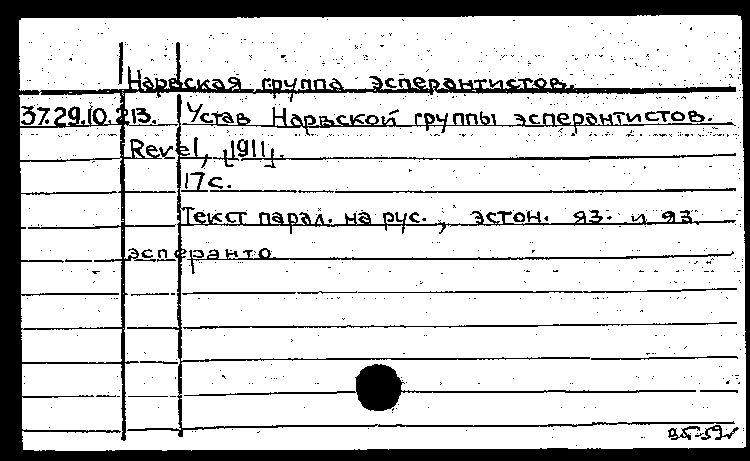 Нарвская группа эсперантистов.
37.29.10.213. Устав Нарвской группы эсперантистов.
Revel, [1911].
17 с.
Текст парал. на рус., эстон. яз. и яз.
эсперанто